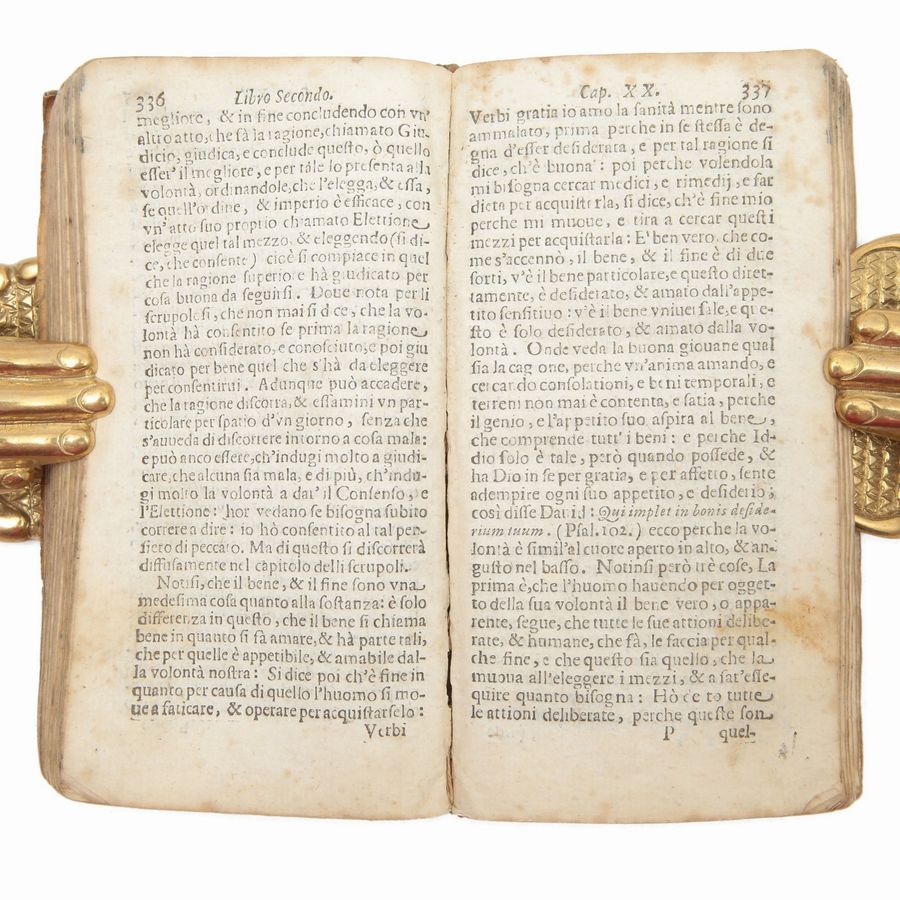 336 Libro Secondo.
megliore, & in fine concludendo con vn'
altro atto, che fà la ragione, chiamato Giu-
dicio, giudica, e conclude questo, ò quello
esser' il megliore, e per tale lo presenta alla
volontà, ordinandole, che l'elegga, & essa,
se quell'ordine, & imperio è efficace, con
vn'atto suo proprio chiamato Elettione
elegge quel tal mezzo, & eleggendo (si di-
ce, che consente) cioè si compiace in quel
che la ragione superiore hà giudicato per
cosa buona da seguirsi. Doue nota per li
scrupolosi, che non mai si dice, che la vo-
lontà hà consentito se prima la ragione
non hà considerato, e conosciuto, e poi giu
dicato per bene quel che s'hà da eleggere
per consentirui. Adunque può accadere,
che la ragione discorra, & essamini vn par-
ticolare per spatio d'vn giorno, senza che
s'auueda di discorrere intorno a cosa mala:
e può anco essere, ch'indugi molto a giudi-
care, che alcuna sia mala, e di più, ch'indu-
gi molto la volontà a dar' il Consenso, e
l'Elettione: hor vedano se bisogna subito
correre a dire: io hò consentito al tal pen-
siero di peccato. Ma di questo si discorrerà
diffusamente nel capitolo delli scrupoli.
Notisi, che il bene, & il fine sono vna
medesima cosa quanto alla sostanza: è solo
differenza in questo, che il bene si chiama
bene in quanto si fà amare, & hà parte tali,
che per quelle è appetibile, & amabile dal-
la volontà nostra: Si dice poi ch'è fine in
quanto per causa di quello l'huomo si mo-
ue a faticare, & operare per acquistarselo:
Verbi
Cap. XX. 337
Verbi gratia io amo la sanità mentre sono
ammalato, prima perche in se stessa è de-
gna d'esser desiderata, e per tal ragione si
dice, ch'è buona: poi perche volendola
mi bisogna cercar medici, e rimedij, e far
dieta per acquistarla, si dice, ch'è fine mio
perche mi muoue, e tira a cercar questi
mezzi per acquistarla: E' ben vero, che co-
me s'accennò, il bene, & il fine è di due
sorti, v'è il bene particolare, e questo diret-
tamente, è desiderato, & amato dall'appe-
tito sensitiuo: v'è il bene vniuersale, e que-
sto è solo desiderato, & amato dalla vo-
lontà. Onde veda la buona giouane qual
sia la cagione, perche vn'anima amando, e
cercando consolationi, e beni temporali, e
terreni non mai è contenta, e satia, perche
il genio, e l'appetito suo aspira al bene,
che comprende tutt' i beni: e perche Id-
dio solo è tale, però quando possede, &
ha Dio in se per gratia, e per affetto, sente
adempire ogni suo appetito, e desiderio;
così disse Dauid: Qui implet in bonis deside
rium tuum. (Psal. 102.) ecco perche la vo-
lontà è simil'al cuore aperto in alto, & an-
gusto nel basso. Notinsi però trè cose, La
prima è, che l'huomo hauendo per ogget-
to della sua volontà il bene vero, o appa-
rente, segue, che tutte le sue attioni delibe-
rate, & humane, che fà, le faccia per qual-
che fine, e che questo sia quello, che la
muoua all'eleggere i mezzi, & a fat'esse-
quire quanto bisogna: Hò detto tutte
le attioni deliberate, perche queste son
P quel-